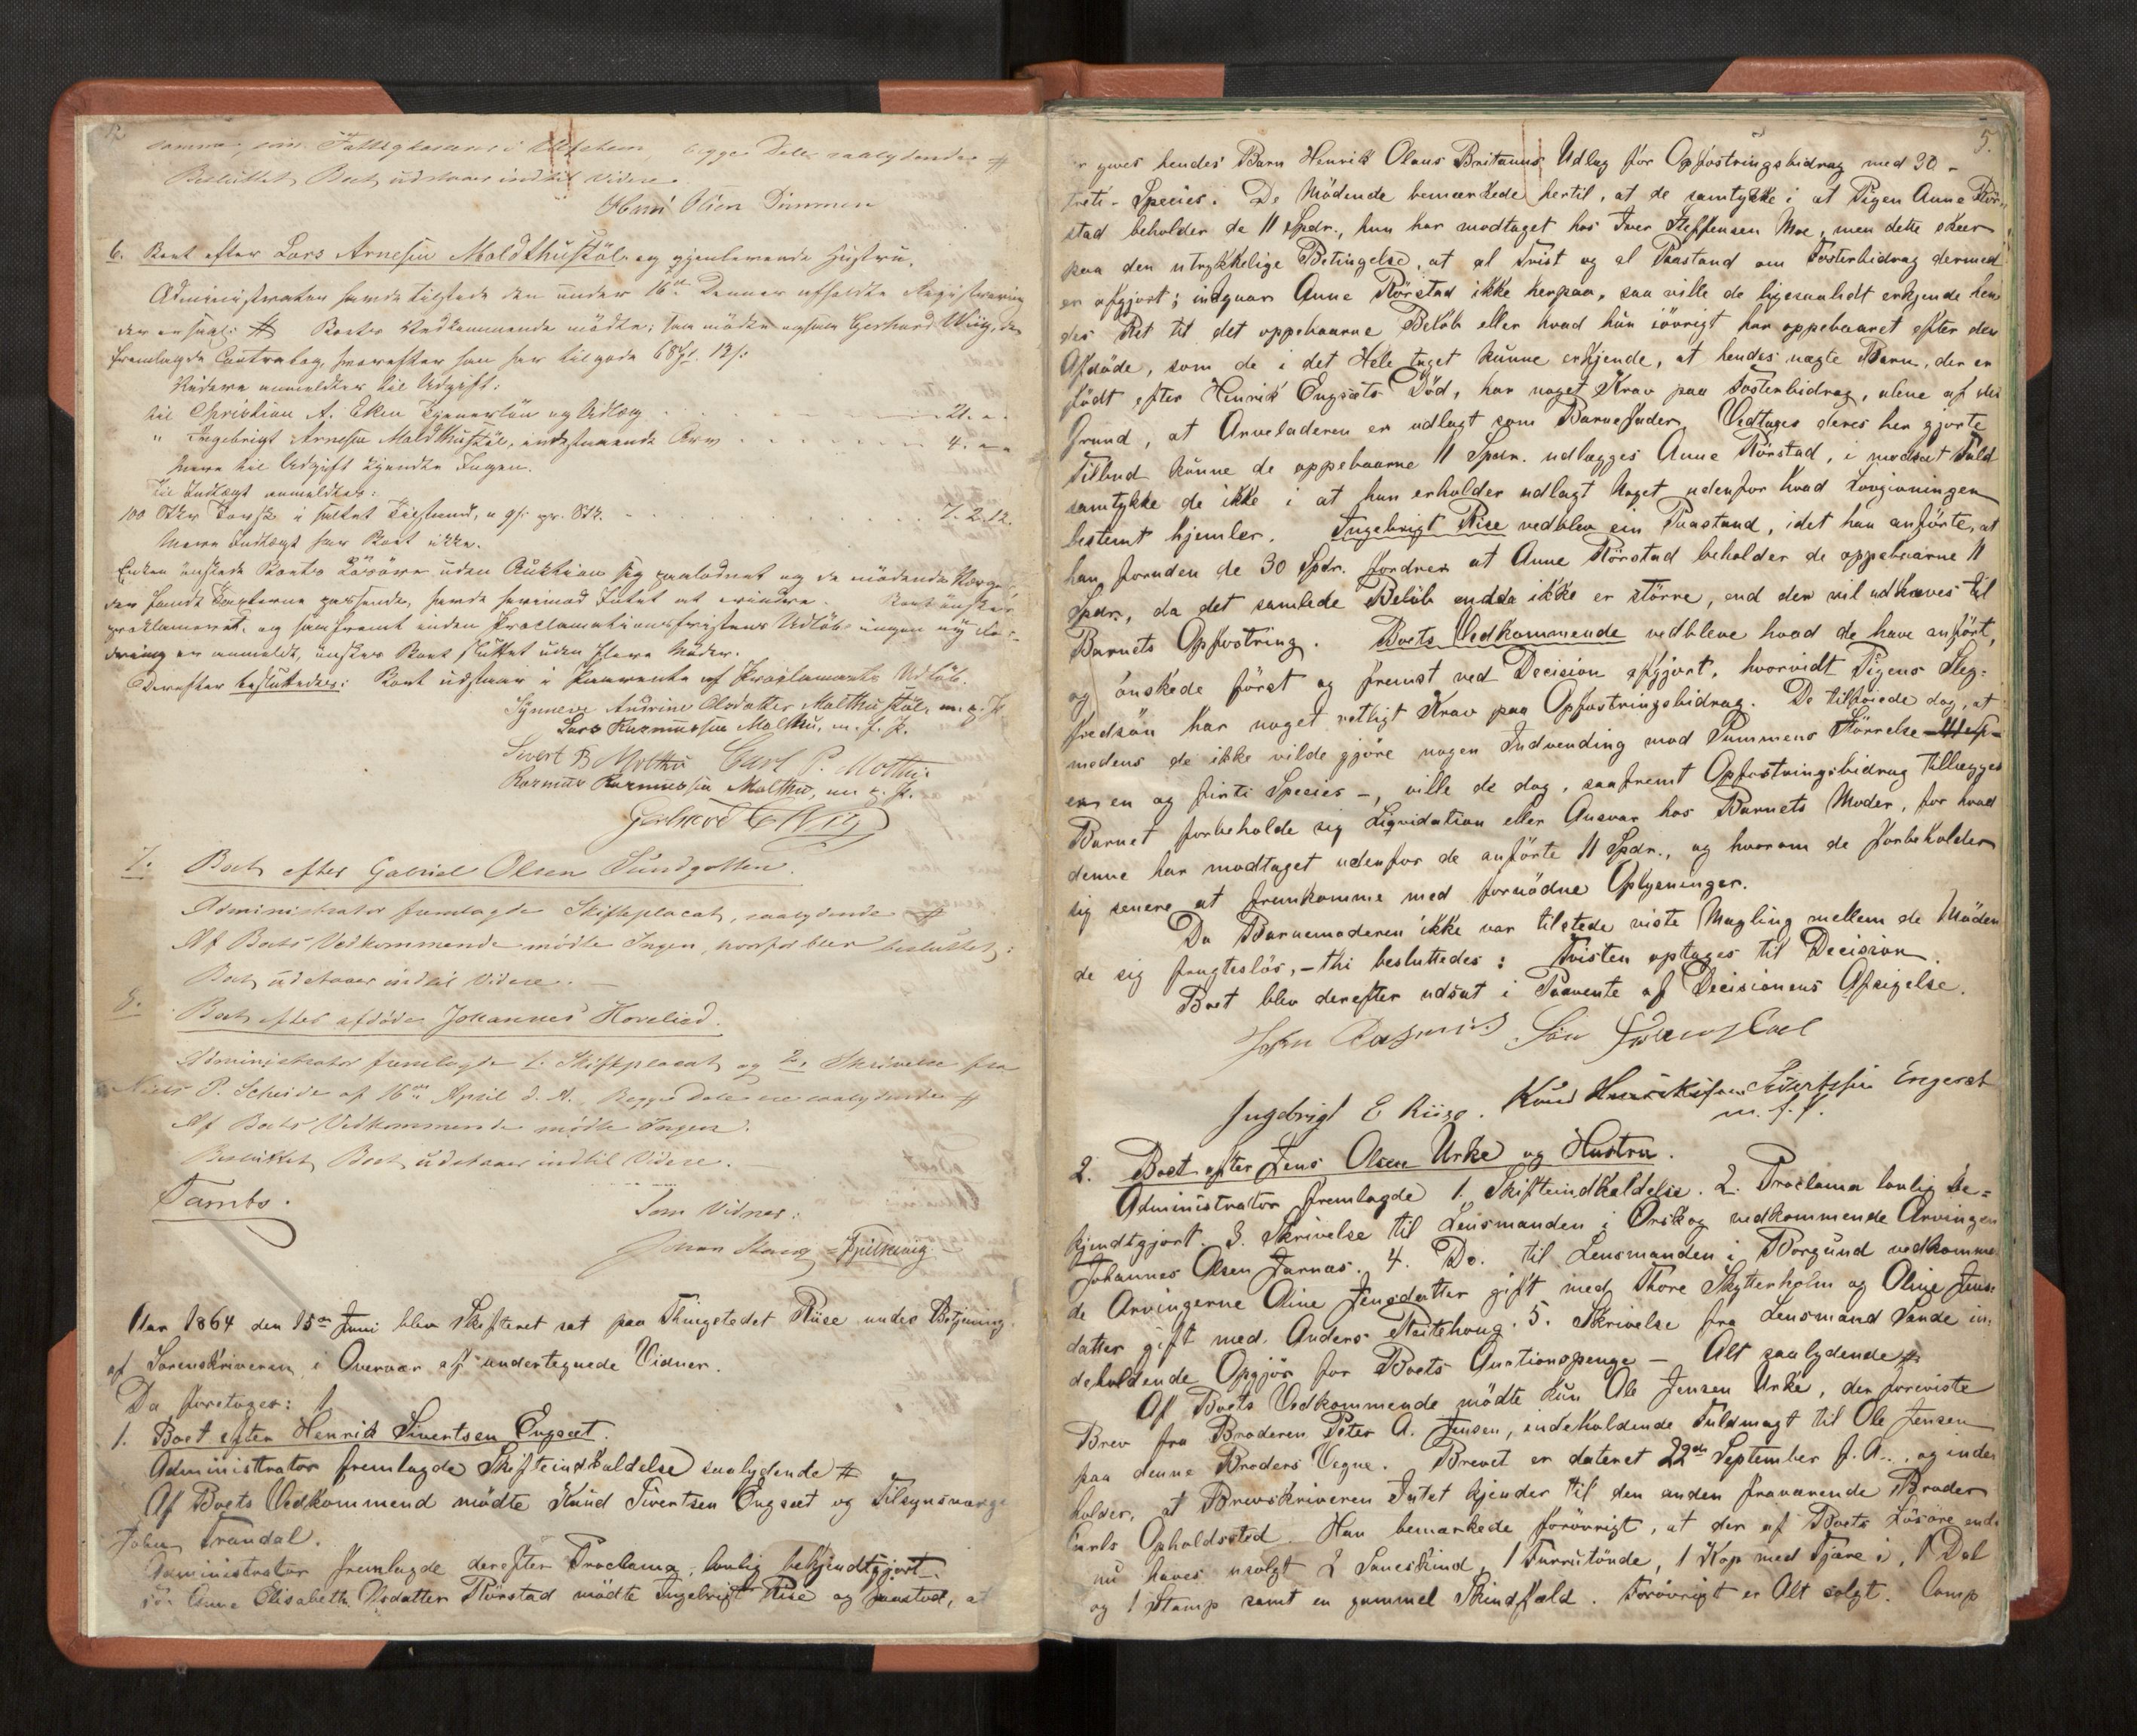 samme, som Fattigkassen i Ulfsteen, begge Dele saalydende #
Besluttet, Boet udstaaer indtil Videre.
Hans Olsen Dimmen
6. Boet efter Lars Arnesen Moldthustöl og gjenlevende Hustru.
Administrator havde tilstede den under 16de Dennes afholdte Registrering
der er saal: # Boets Vedkommende mödte; som mödte ogsaa Gerhard Wiig, der
fremlagde Contrabog, hvorefter han har tilgode 68 12 s:
Videre anmeldtes til Udgift:
til Christian A. Eken Tjenerlön og Udlæg . . . 21. " "
" Ingebrigt Arnesen Moldthustöl, indestaaende Arv . . . 4. " "
Mere til Udgift kjendte Ingen.
Til Indtægt anmeldtes:
100 Stkr Torsk i saltet Tilstand, a 9 s: pr. Stk. . . . 7. 2. 12.
Mere Indtægt har Boet ikke.
Enken önskede Boets Lösöre uden Auktion sig udlodnet og de mödende Værger
der fandt Taxterne passende, havde herimod Intet at erindre. Boet önskes
proklameret, og saafremt inden Proclamationsfristens Udlöb ingen ny For-
dring er anmeldt, önskes Boet sluttet uden flere Möder.
Derefter besluttedes: Boet udstaar i Paavente af Proclamaets Udlöb.
Synneve Andrine Olsdatter Malthustöl, m. p. P.
Lars Rasmussen Malthu, m. f. P.
Sivert B Molthu Carl P. Molthu
Rasmus Rasmussen Malthu, m p. P.
Gerhard Wiig
7. Boet efter Gabriel Olsen Sundgotten.
Administrator fremlagde Skifteplacat, saalydende #
Af Boets Vedkommende mödte Ingen, hvorfor blev besluttet:
Boet udstaaer indtil Videre.
8. Boet efter afdöde Johannes Hovelied.
Administrator fremlagde 1. Skifteplacat og 2. Skrivelse fra
Niels P. Scheide af 16de April d. A. Begge Dele ere saalydende #
Af Boets Vedkommende mödte Ingen.
Besluttet, Boet udstaaer indtil Videre.
Tambs.
Som Vidner:
Johan
Aar 1864 den 15de Juni blev Skifteret sat paa Thingstedet Riise under Betjening
af Sorenskriveren i Overvær af undertegnede Vidner.
Da foretoges:
1. Boet efter Henrik Sivertsen Engsæt.
Administrator fremlagde Skifteindkaldelse saalydende #
Af Boets Vedkommend mödte Knud Sivertsen Engsæt og Tilsynsværge
John Trandal.
Administrator fremlagde derefter Proclama, lovlig bekjendtgjort.
For Anne Elisabeth Olsdatter Rörstad mödte Ingebrigt Rise og paastod, at
5.
der gives hendes Barn Henrik Olaus Britanus Udlæg for Opfostringsbidrag med 30 -
treti - Species. De Mödende bemærkede hertil, at de samtykke i at Pigen Anne Rör-
stad beholder de 11 Spdr., hun har modtaget hos Iver Steffensen Moe, men dette skeer
paa den utrykkelige Betingelse, at al Trist og al Paastand om Fosterbidrag dermed
er afgjort; indgaar Anne Rörstad ikke herpaa, saa ville de ligesaalidt erkjende hen
des Ret til det oppebaarne Belöb eller hvad hun iövrigt har oppebaaret efter den
Afdöde, som de i det Hele taget kunne erkjende, at hendes uægte Barn, der er
födt efter Henrik Engsæts Död, har noget Krav paa Fosterbidrag, alene af den
Grund, at Arveladeren er udlagt som Barnefader. Vedtages deres her gjorte
Tilbud kunne de oppebaarne 11 Spdr. udlægges Anne Rörstad, i modsat Fald
samtykke de ikke i at hun erholder udlagt Noget udenfor hvad Lovgivningen
bestemt hjemler. Ingebrigt Rise vedblev sin Paastand, idet han anförte, at
han foruden de 30 Spdr. fordrer at Anne Rörstad beholder de oppebaarne 11
Spdr., da det samlede Belöb endda ikke er större, end der vil udkræves til
Barnets Opfostring. Boets Vedkommende vedbleve hvad de have anfört,
og önskede först og fremst ved Decision afgjort, hvorvidt Pigens Sleg-
fredsön har noget retligt Krav paa Opfostringsbidrag. De tilföiede dog, at
medens de ikke vilde gjöre nogen Indvending mod Summens Störrelse
en og firti Species -, ville de dog, saafremt Opfostringsbidrag tillægges
Barnet forbeholde sig Liqvidation eller Ansvar hos Barnets Moder, for hvad
denne har modtaget udenfor de anförte 11 Spdr., og hvorom de forbeholder
sig senere at fremkomme med fornödne Oplysninger.
Da Barnemoderen ikke var tilstede viste Mægling mellem de Möden
de sig frugteslös, - thi besluttedes: Tvisten optages til Decision.
Boet blev derefter udsat i Paavente af Decisionens Afsigelse.
John Rasmus Sön
Ingebrigt E Riise. Knud Sivertsen Engesæt
m. f. P.
2. Boet efter Jens Olsen Urke og Hustru.
Administrator fremlagde 1. Skifteindkaldelse. 2. Proclama lovlig be-
kjendtgjort. 3. Skrivelse til Lensmanden i Örskog vedkommende Arvingen
Johannes Olsen Jarnæs. 4. Do. til Lensmanden i Borgund vedkommen
de Arvingerne Oline Jensdatter gift med Thore Skytterholm og Oline Jens-
datter gift med Anders Steitehoug. 5. Skrivelse fra Lensmand Sande in-
deholdende Opgjör for Boets Auctionspenge - Alt saalydende #
Af Boets Vedkommende mödte kun Ole Jensen Urke, der foreviste
Brev fra Broderen Peter A. Jensen, indeholdende Fuldmagt til Ole Jensen
paa denne Broders Vegne. Brevet er dateret 22de September f. A., og inde-
holder, at Brevskriveren Intet kjender til den anden fraværende Broder
Carls Opholdssted. Han bemærkede forövrigt, at der af Boets Lösöre end-
nu haves usolgt 2 Saueskind, 1 Furrutönde, 1 Kop med Tjære i, 1 Dal
og 1 Stamp samt en gammel Skindfæld. Forövrigt er Alt solgt. Comp